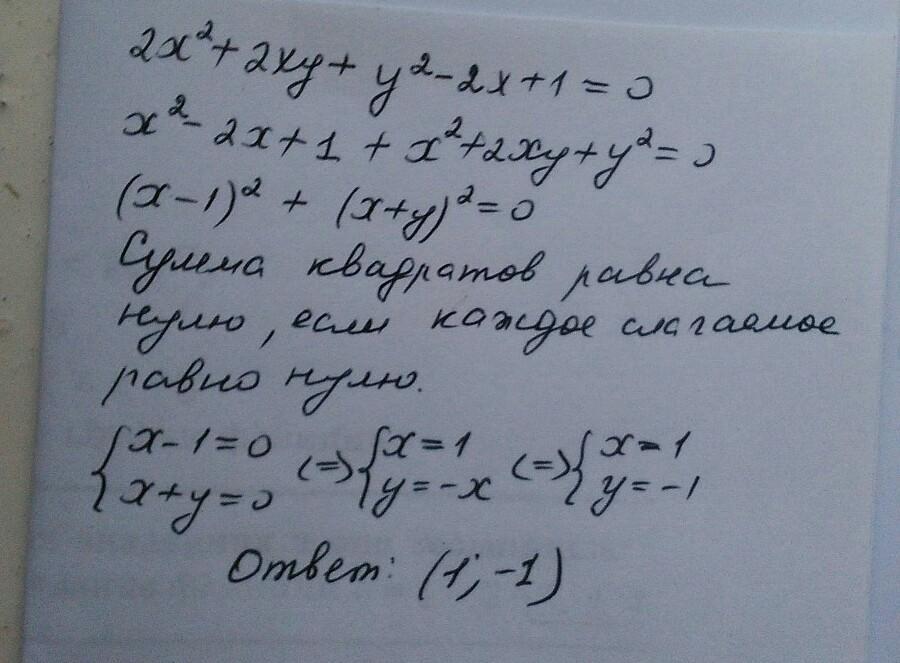 2x² + 2xy + y² - 2x + 1 = 0
x² - 2x + 1 + x² + 2xy + y² = 0
(x-1)² + (x+y)² = 0
Сумма квадратов равна
нулю, если каждое слагаемое
равно нулю.
{x-1=0 {x=1 {x=1
{x+y=0 <=> {y=-x <=> {y=-1
Ответ: (1; -1)